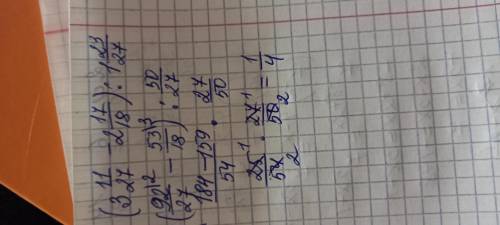 (3 11/27 - 2 17/18) : 1 23/27
(92/27 ² - 53/18 ³) : 50/27
184-159/54 · 27/50
25¹/54 ₂ · 27¹/50 ₂ = 1/4